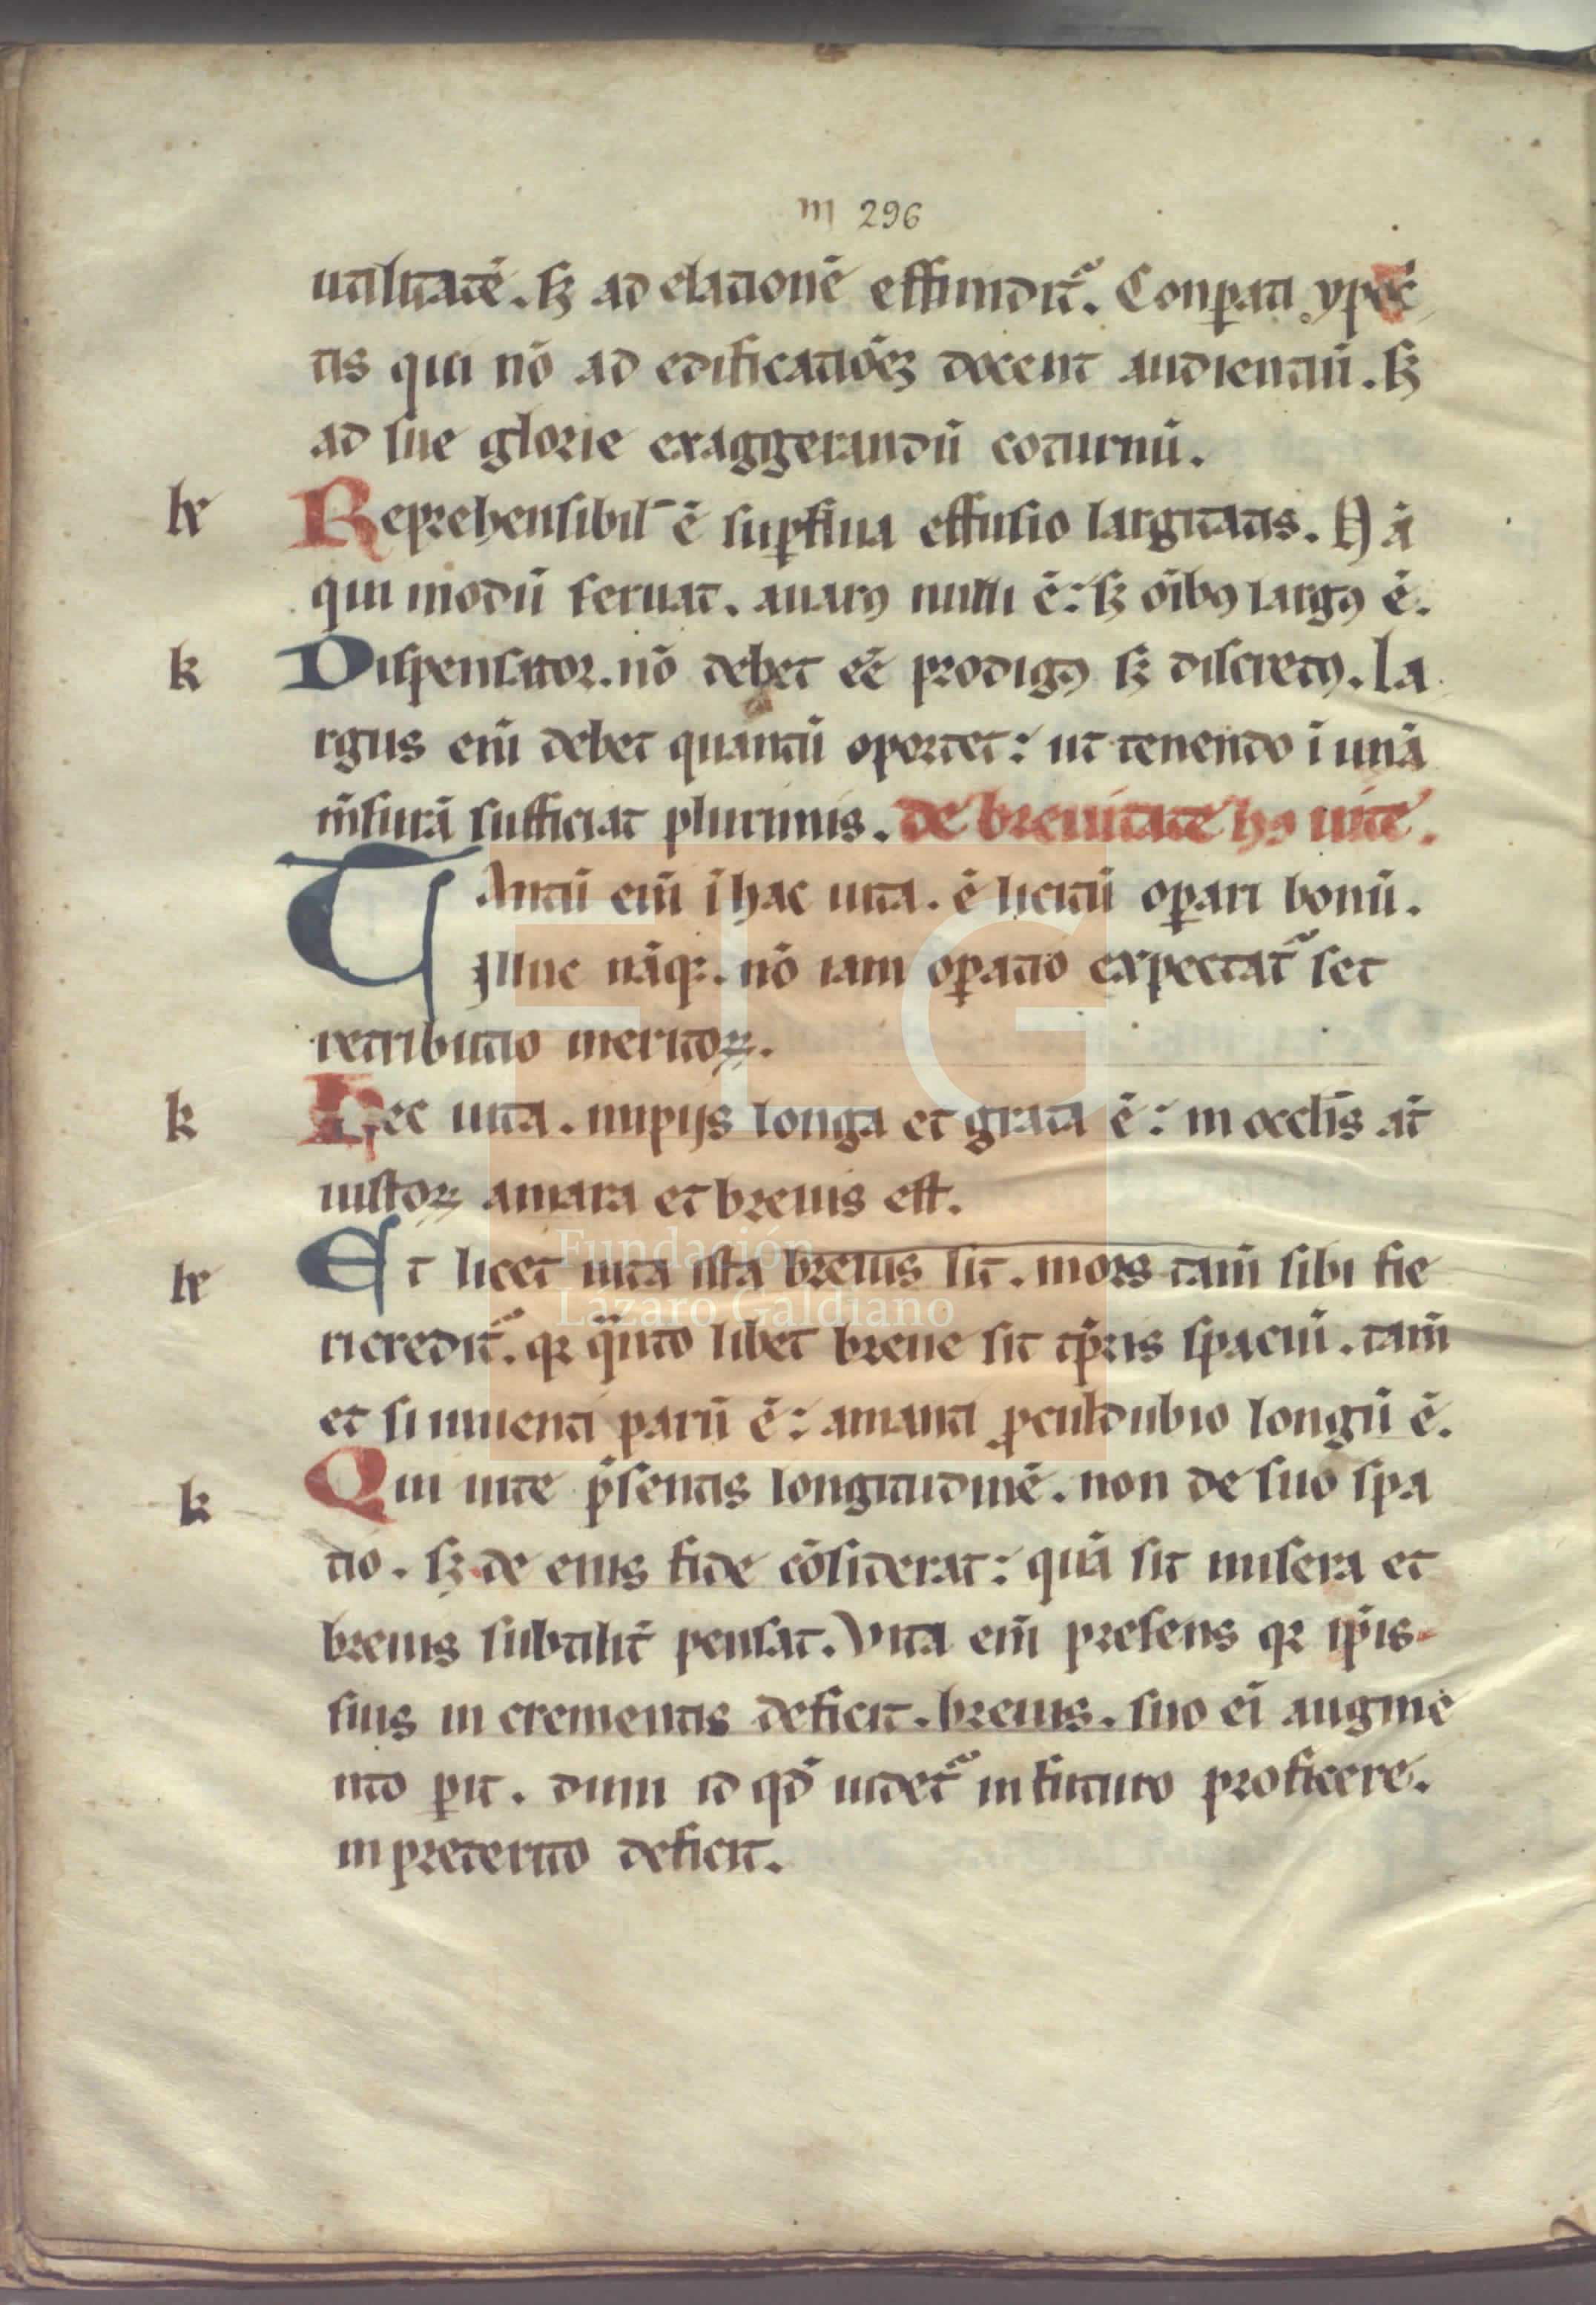 m 296
utilitatē. sꝫ ad elationē effundit᷑. Conꝑati ypoc̄
tis qui nō ad edificatiōeꝫ docent audientiū. sꝫ
ad sue glorie exaggerandū coturnū.
k Reprehensibil̄ ē suꝑflua effusio largitatis. Nā
qui modū seruat. auarꝰ nulli ē: sꝫ oībꝰ largꝰ ē.
k Dispensator. nō debet eē prodigꝰ sꝫ discretꝰ. la
rgus eni̅ debet quantū oportet: ut tenendo ī unā
m̄surā sufficiat plurimis. de breuitate hꝰ uite.
Tantū eni̅ ī hac uita. ē licitū oꝑari bonū.
Illuc nāqꝫ. nō iam oꝑatio expectat᷑ set
retributio meritoꝝ.
k Hec uita. inpijs longa et grata ē: in occlīs at̄
iustoꝝ amara et breuis est.
k Et licet uita ista breuis sit. mors tam̄ sibi fie
ri credit᷑. qr qͣnto libet breue sit tp̄ris spaciū. tam̄
et si uiuenti parū ē: amanti ꝓculdubio longū ē.
k Qui uite p̄sentis longitudinē. non de suo spa
tio. sꝫ de eius fide cōsiderat: quā sit misera et
breuis subtilit̄ pensat. Vita eni̅ presens qr ip̄is
suis in crementis deficit. breuis. suo ei̅ augme
nto ꝑit. dum id qd̄ uidet᷑ in futuro proficere.
in preterito deficit.
Fundación
Lázaro Galdiano
FLG